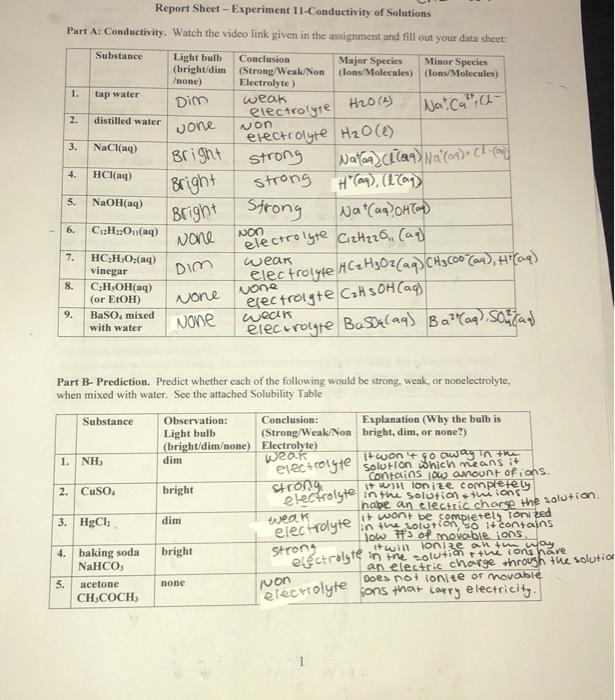 Report Sheet – Experiment 11-Conductivity of Solutions
Part A: Conductivity. Watch the video link given in the assignment and fill out your data sheet:
Substance | Light bulb (bright/dim /none) | Conclusion (Strong/Weak/Non Electrolyte ) | Major Species (Ions/Molecules) | Minor Species (Ions/Molecules)
1. tap water | Dim | weak electrolyte | H2O (l) | Na+, Ca2+, Cl-
2. distilled water | None | Non electrolyte | H2O(l)
3. NaCl(aq) | Bright | strong | Na+(aq) Cl-(aq) | Na+(aq) Cl-(aq)
4. HCl(aq) | Bright | strong | H+(aq), Cl-(aq)
5. NaOH(aq) | Bright | Strong | Na+(aq) OH-(aq)
6. C12H22O11(aq) | None | Non electrolyte | C12H22O11 (aq)
7. HC2H3O2(aq) vinegar | Dim | weak electrolyte | HC2H3O2(aq) | CH3COO-(aq), H+(aq)
8. C2H5OH(aq) (or EtOH) | None | None electrolyte | C2H5OH(aq)
9. BaSO4 mixed with water | None | weak electrolyte | BaSO4(aq) | Ba2+(aq), SO42-(aq)
Part B- Prediction. Predict whether each of the following would be strong, weak, or nonelectrolyte,
when mixed with water. See the attached Solubility Table
Substance | Observation: Light bulb (bright/dim/none) | Conclusion: (Strong/Weak/Non Electrolyte) | Explanation (Why the bulb is bright, dim, or none?)
1. NH3 | dim | weak electrolyte | It won't go away in the solution which means it contains low amount of ions.
2. CuSO4 | bright | strong electrolyte | it will ionize completely in the solution + the ions have an electric charge the solution.
3. HgCl2 | dim | weak electrolyte | it wont be completely ionized in the solution, so it contains low #'s of movable ions.
4. baking soda NaHCO3 | bright | strong electrolyte | it will ionize all the way in the solution + the ions have an electric charge through the solution
5. acetone CH3COCH3 | none | Non electrolyte | Does not ionize or movable ions that carry electricity.
1